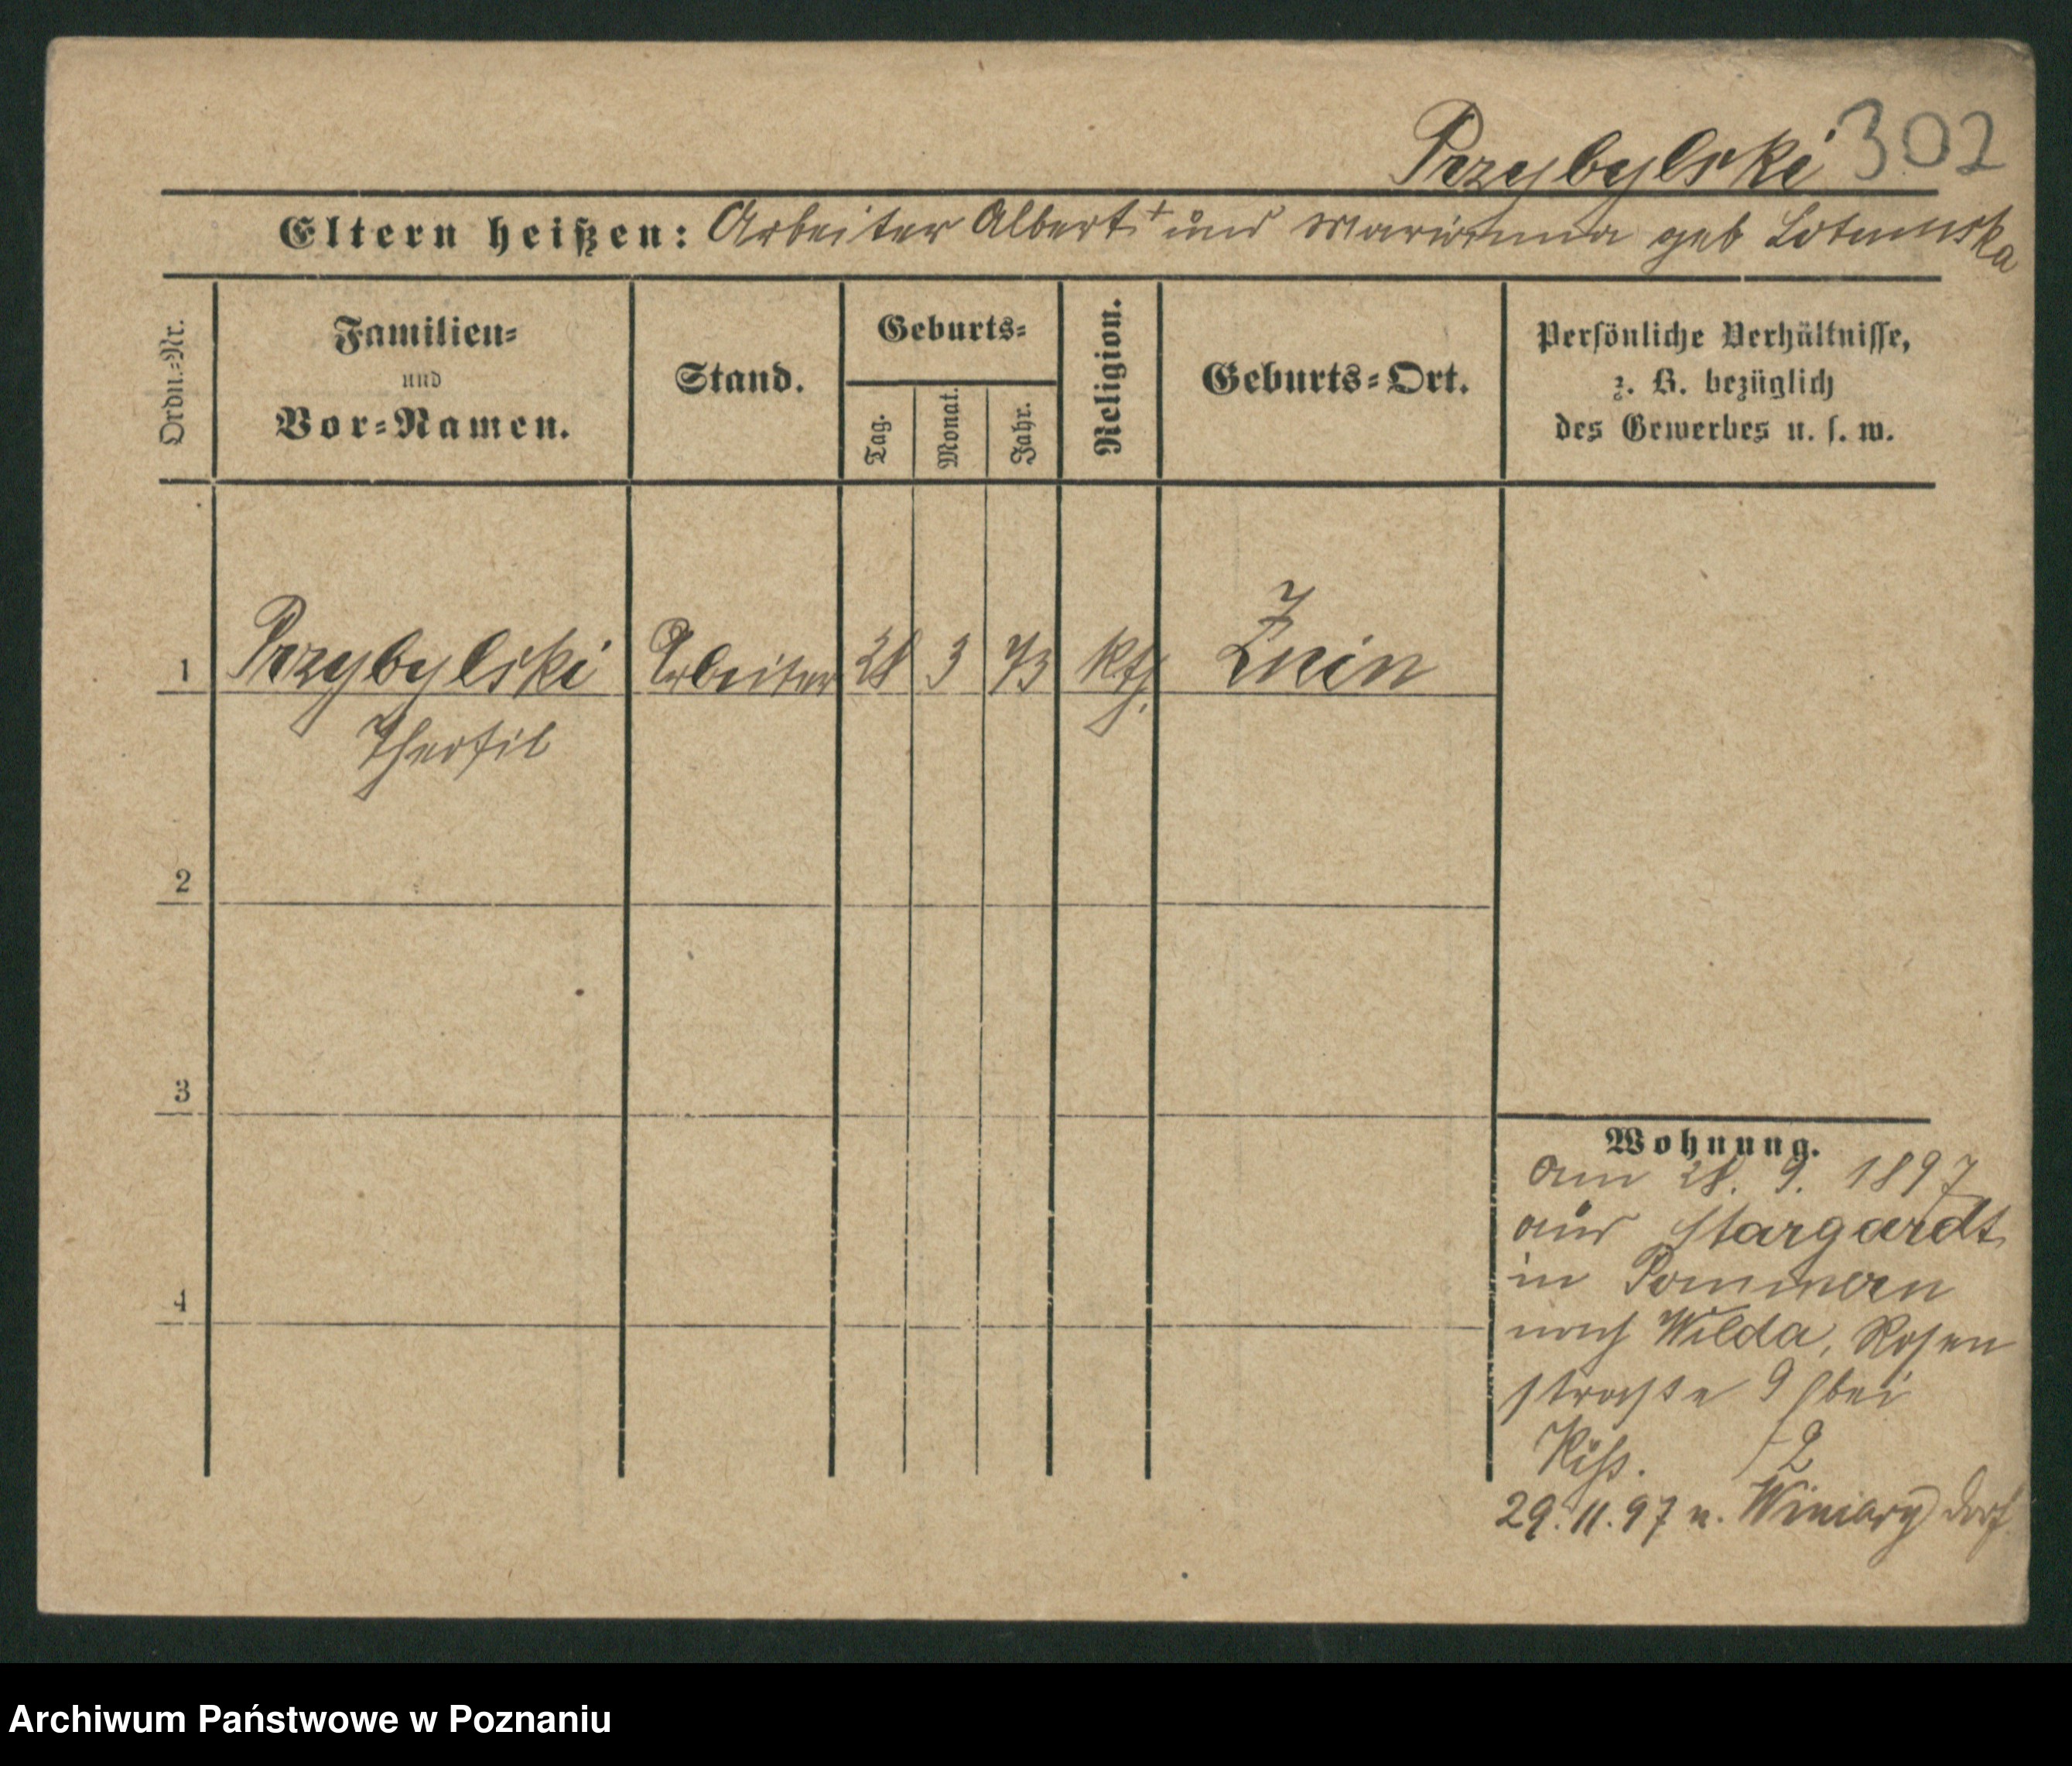 Przybylski 302
Eltern heißen: Arbeiter Albert + und Marianna geb
Ordn.-Nr.
Familien-
und
Vor-Namen.
Stand.
Geburts-
Tag.
Monat.
Jahr.
Religion.
Geburts-Ort.
Persönliche Verhältnisse,
z. B. bezüglich
des Gewerbes u. s. w.
1 Przybylski Arbeiter 28 3 73 kth. Znin
Theofil
2
3
4
Wohnung.
am 28. 9. 1897
aus Stargardt
in Pommern
nach Wilda, Rosen
straße 9 bei
29.11.97 n. Winiary dorf
Archiwum Państwowe w Poznaniu